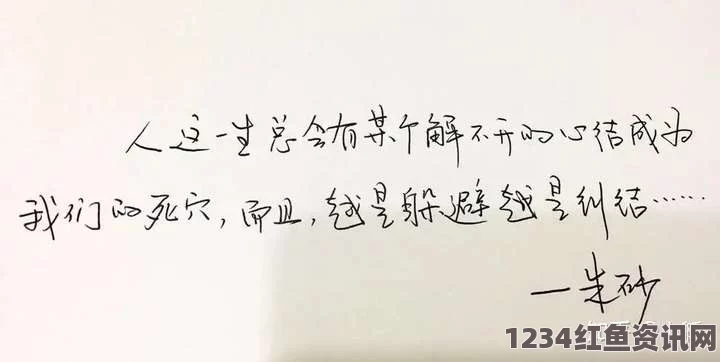 人这一生总会有某个解不开的心结成为
我们的死穴，而且，越是躲避越是纠结……
—朱砂
1234红鱼资讯网